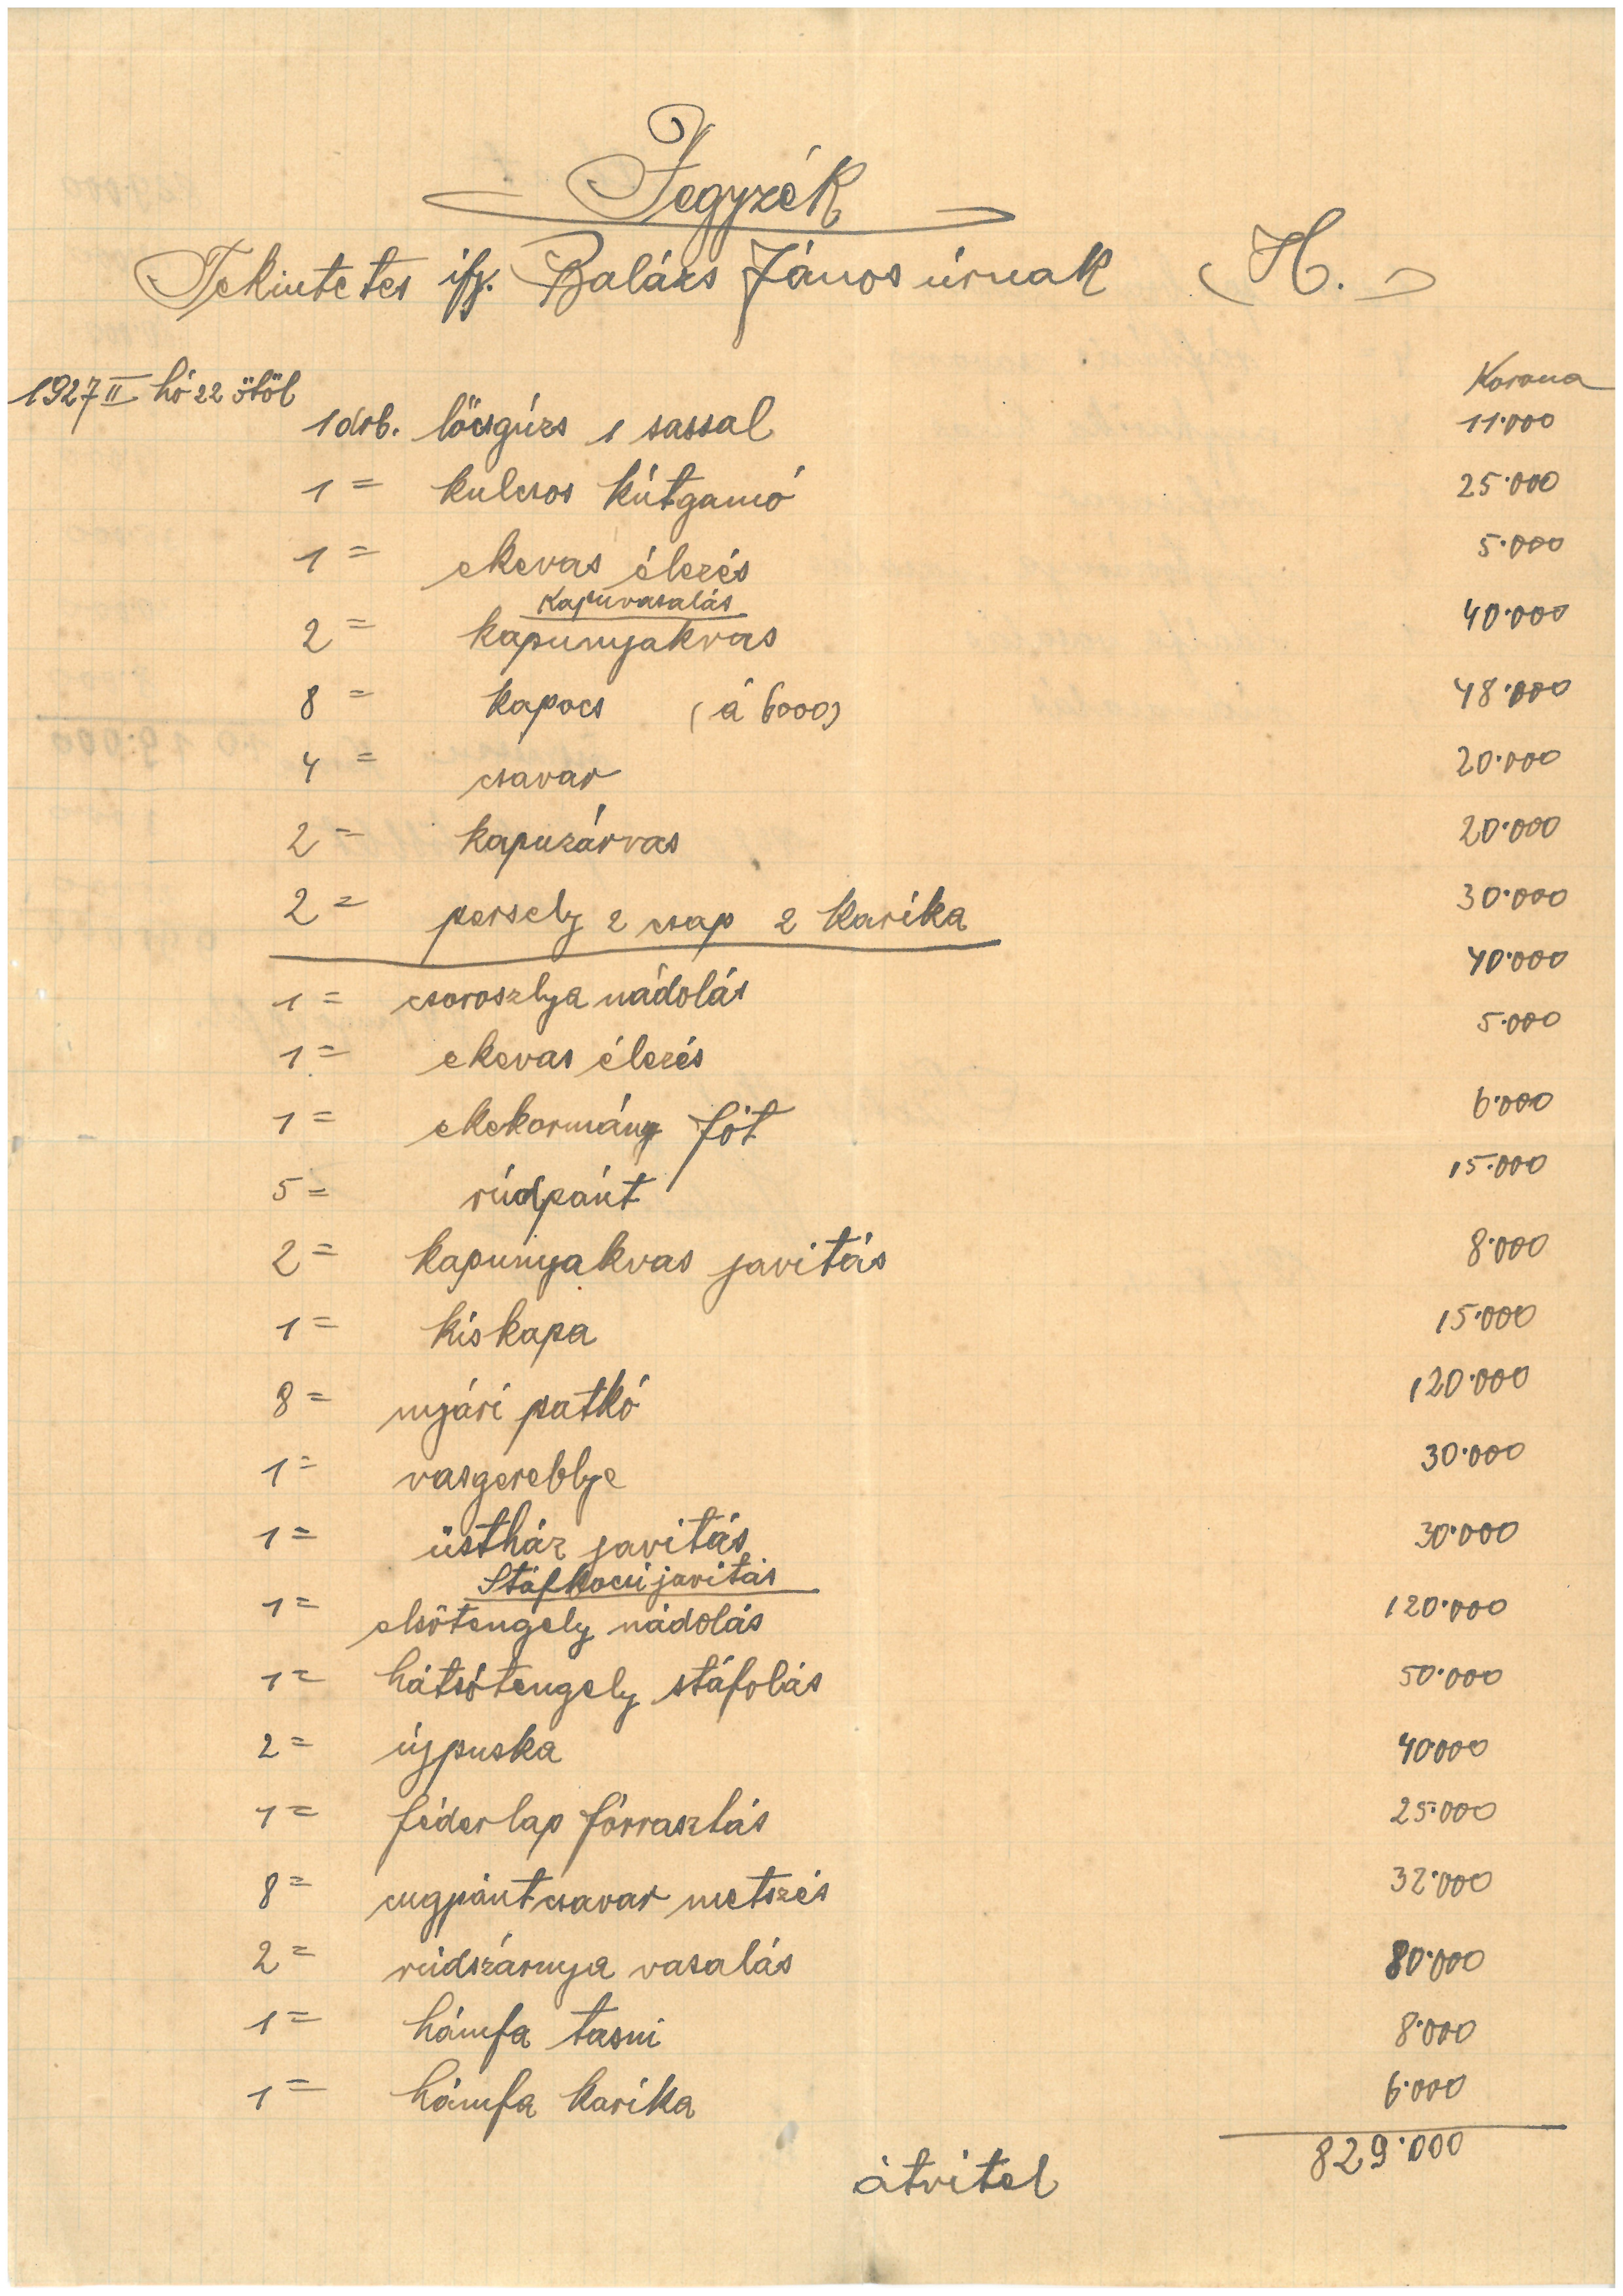 Jegyzék
Tekintetes ifj. Balázs János úrnak H.
1927 II hó 22 ötöl
Korona
1 drb. lőcsgúzs 1 sassal 11·000
1 = kulcsos kútgamó 25·000
1 = ekevas élezés 5·000
Kapuvasalás
2 = kapunyakvas 40·000
8 = kapocs (á 6000) 48·000
4 = csavar 20·000
2 = kapuzárvas 20·000
2 = persely 2 csap 2 karika 30·000
1 = csoroszlya nádolás 40·000
1 = ekevas élezés 5·000
1 = ekekormány fót 6·000
5 = rúdpánt 15·000
2 = kapunyakvas javitás 8·000
1 = kis kapa 15·000
8 = nyári patkó 120·000
1 = vasgereblye 30·000
1 = üstház javitás 30·000
Stáfkocsi javitás
1 = elsőtengely nádolás 120·000
1 = hátsótengely stáfolás 50·000
2 = új puska 40·000
1 = féderlap fórrasztás 25·000
8 = cugpánt csavar metszés 32·000
2 = rúdszárnya vasalás 80·000
1 = hámfa tasni 8·000
1 = hámfa karika 6·000
átvitel 829·000